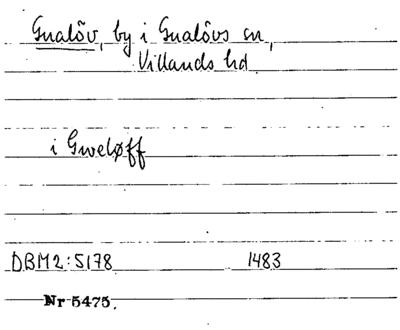 Gualöv, by i Gualövs sn,
Villands hd.
i Gweløff
DBM2:5178 1483
Nr 5475.